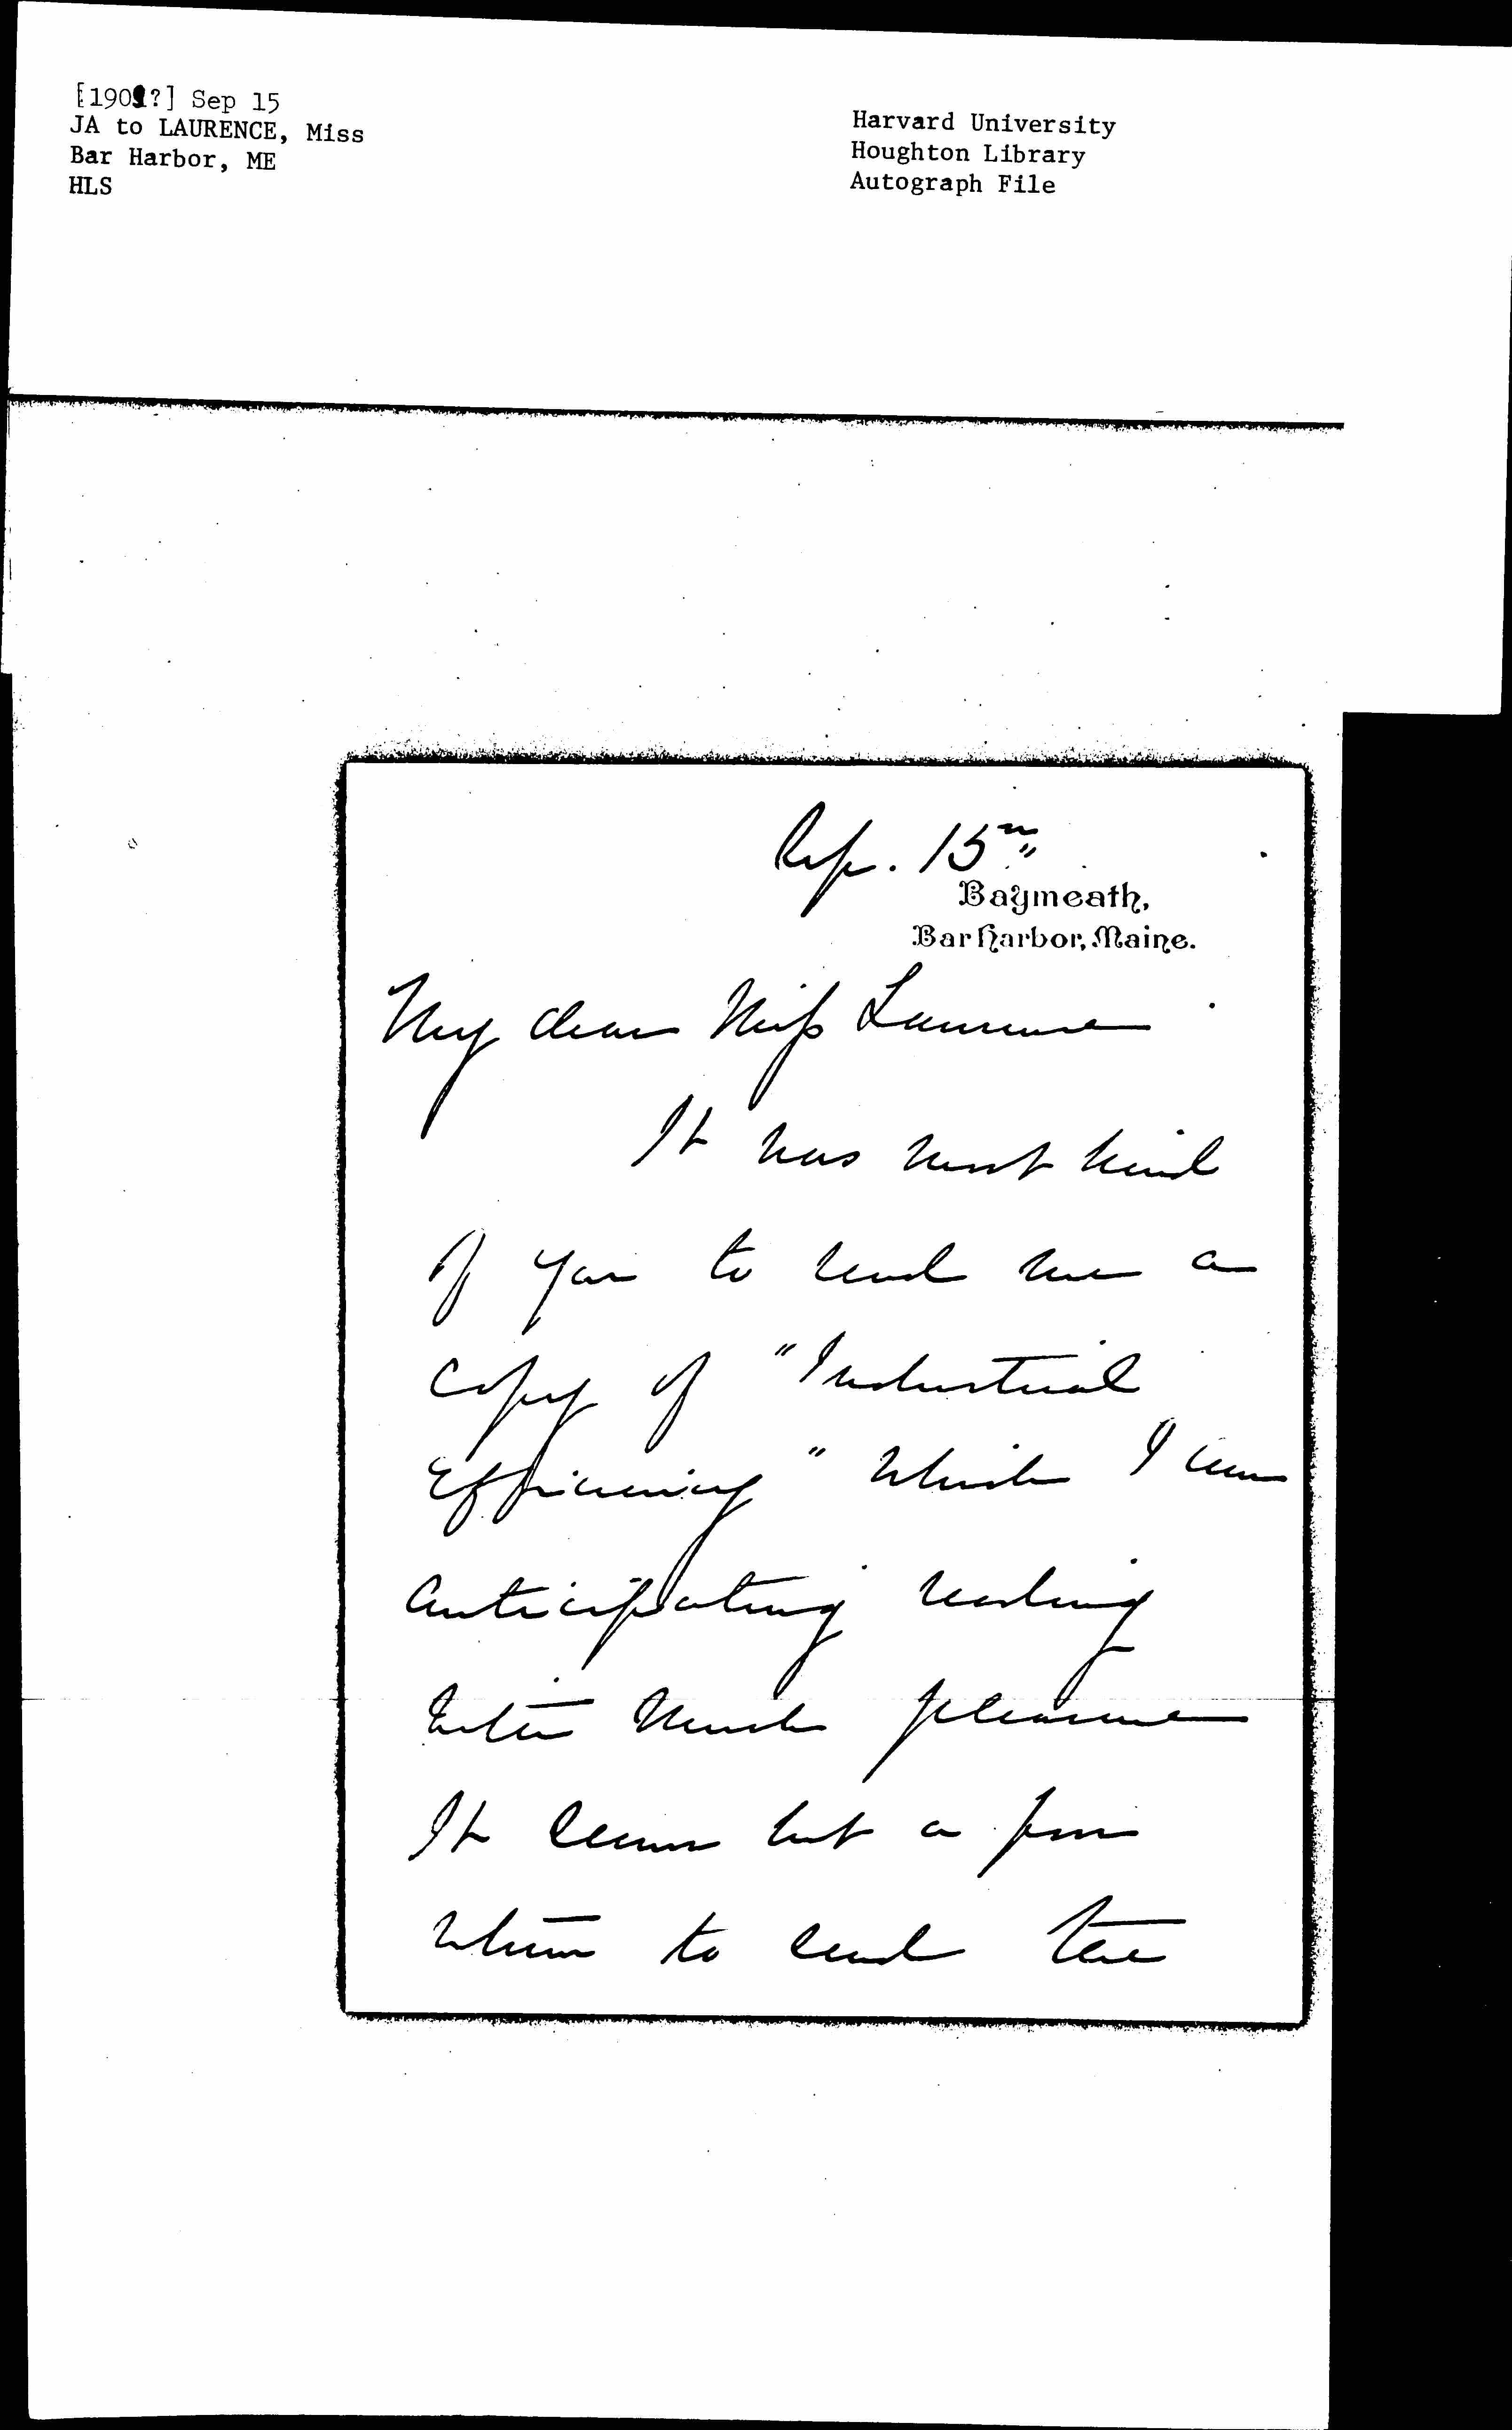 [1901?] Sep 15
JA to LAURENCE, Miss
Bar Harbor, ME
HLS
Harvard University
Houghton Library
Autograph File
Sep. 15th
Baymeath,
Bar Harbor, Maine.
My dear Miss Laurence
It was most kind
of you to send me a
copy of "Industrial
Efficiency" which I am
anticipating reading
with much pleasure
It seems but a poor
return to send the